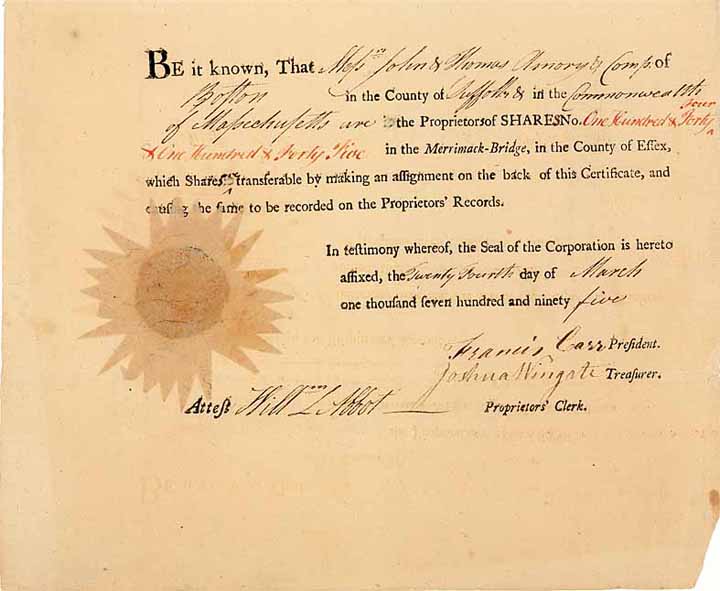 BE it known, That Messrs John & Thomas Amory & Comp. of
Boston in the County of Suffolk & in the Commonwealth
of Massechusetts are the Proprietors of SHARES No. One Hundred & Forty Four
& One Hundred & Forty Five in the Merrimack-Bridge, in the County of Eſſex,
which Shares transferable by making an aſſignment on the back of this Certificate, and
cauſing the ſame to be recorded on the Proprietors' Records.
In teſtimony whereof, the Seal of the Corporation is hereto
affixed, the Twenty Fourth day of March
one thouſand ſeven hundred and ninety five
Francis Carr Preſident.
Joshua Wingate Treaſurer.
Atteſt Willm L Abbot Proprietors' Clerk.